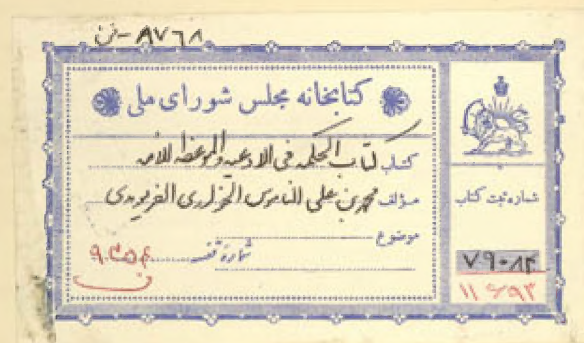 ۸۷۶۸ - ف
کتابخانه مجلس شورای ملی
کتاب کتاب الحکمه فی الادعیه والموعظه للامه
مؤلف محمد بن علی الناموس الخواری الفریومدی
موضوع
شماره قفسه
شماره ثبت کتاب
۷۹۰۸۴